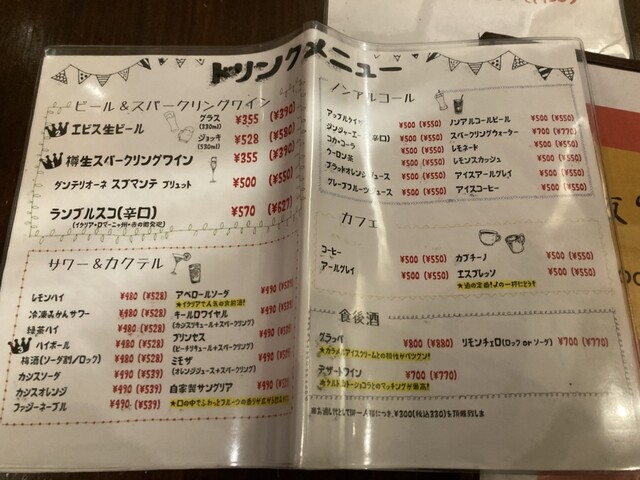 ドリンクメニュー
ビール＆スパークリングワイン
エビス生ビール
グラス (330ml) ¥355 (¥390)
ジョッキ (530ml) ¥528 (¥580)
樽生スパークリングワイン ¥355 (¥390)
ゲンテリオーネ スプマンテ ブリュット ¥500 (¥550)
ランブルスコ(辛口) ¥570 (¥627)
サワー＆カクテル
レモンハイ ¥480 (¥528)
冷凍みかんサワー ¥480 (¥528)
緑茶ハイ ¥480 (¥528)
ハイボール ¥480 (¥528)
梅酒(ソーダ割/ロック) ¥480 (¥528)
カシスソーダ ¥490 (¥539)
カシスオレンジ ¥490 (¥539)
ファジーネーブル ¥490 (¥539)
アペロールソーダ ¥480 (¥528)
★イタリアで人気の食前酒!
キールロワイヤル ¥480 (¥528)
(カシスリキュール+スパークリング)
プリンセス
(ピーチリキュール+スパークリング)
ミモザ
(オレンジジュース+スパークリング)
自家製サングリア
ノンアルコール
¥500 (¥550)
ジンジャーエール(辛口) ¥500 (¥550)
コカ・コーラ ¥500 (¥550)
ウーロン茶 ¥500 (¥550)
ブラッドオレンジジュース ¥500 (¥550)
グレープフルーツジュース ¥500 (¥550)
ノンアルコールビール ¥500 (¥550)
スパークリングウォーター ¥700 (¥770)
レモネード ¥500 (¥550)
レモンスカッシュ ¥500 (¥550)
アイスアールグレイ ¥500 (¥550)
アイスコーヒー ¥500 (¥550)
カフェ
コーヒー ¥500 (¥550)
アールグレイ ¥500 (¥550)
カプチーノ ¥500 (¥550)
エスプレッソ ¥500 (¥550)
★酒の定番!〆の一杯にどうぞ
食後酒
グラッパ ¥800 (¥880)
★カラメルアイスクリームとの相性がバツグン!
デザートワイン ¥700 (¥770)
リモンチェロ(ロック or ソーダ) ¥700 (¥770)
¥300(税込330)を頂戴致しま